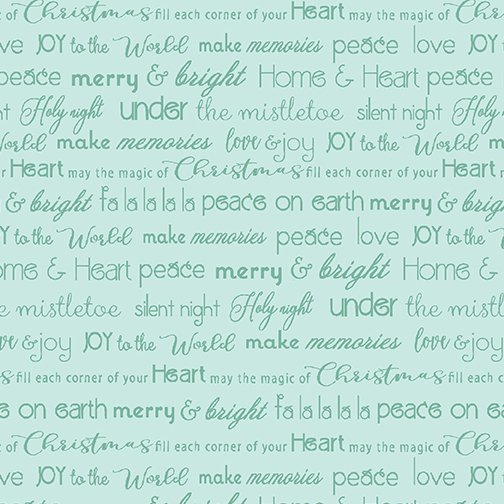 Christmas fill each corner of your Heart may the magic of Christmas
ve JOY to the World make memories peace love JOY to the
peace merry & bright Home & Heart peace
ht Holy night under the mistletoe silent night Holy
World make memories love & joy JOY to the World m
r Heart may the magic of Christmas fill each corner of your Heart m
& bright fa la la la la peace on earth merry & brig
Y to the World make memories peace love JOY to the W
ome & Heart peace merry & bright Home &
e mistletoe silent night Holy night under the m
ve & joy JOY to the World make memories love & joy
s fill each corner of your Heart may the magic of Christmas fill each
e on earth merry & bright fa la la la la peace on ea
of Christmas fill each corner of your Heart may the magic of Chris
ve JOY to the World make memories peace love JOY to the
peace merry & bright Home & Heart peace